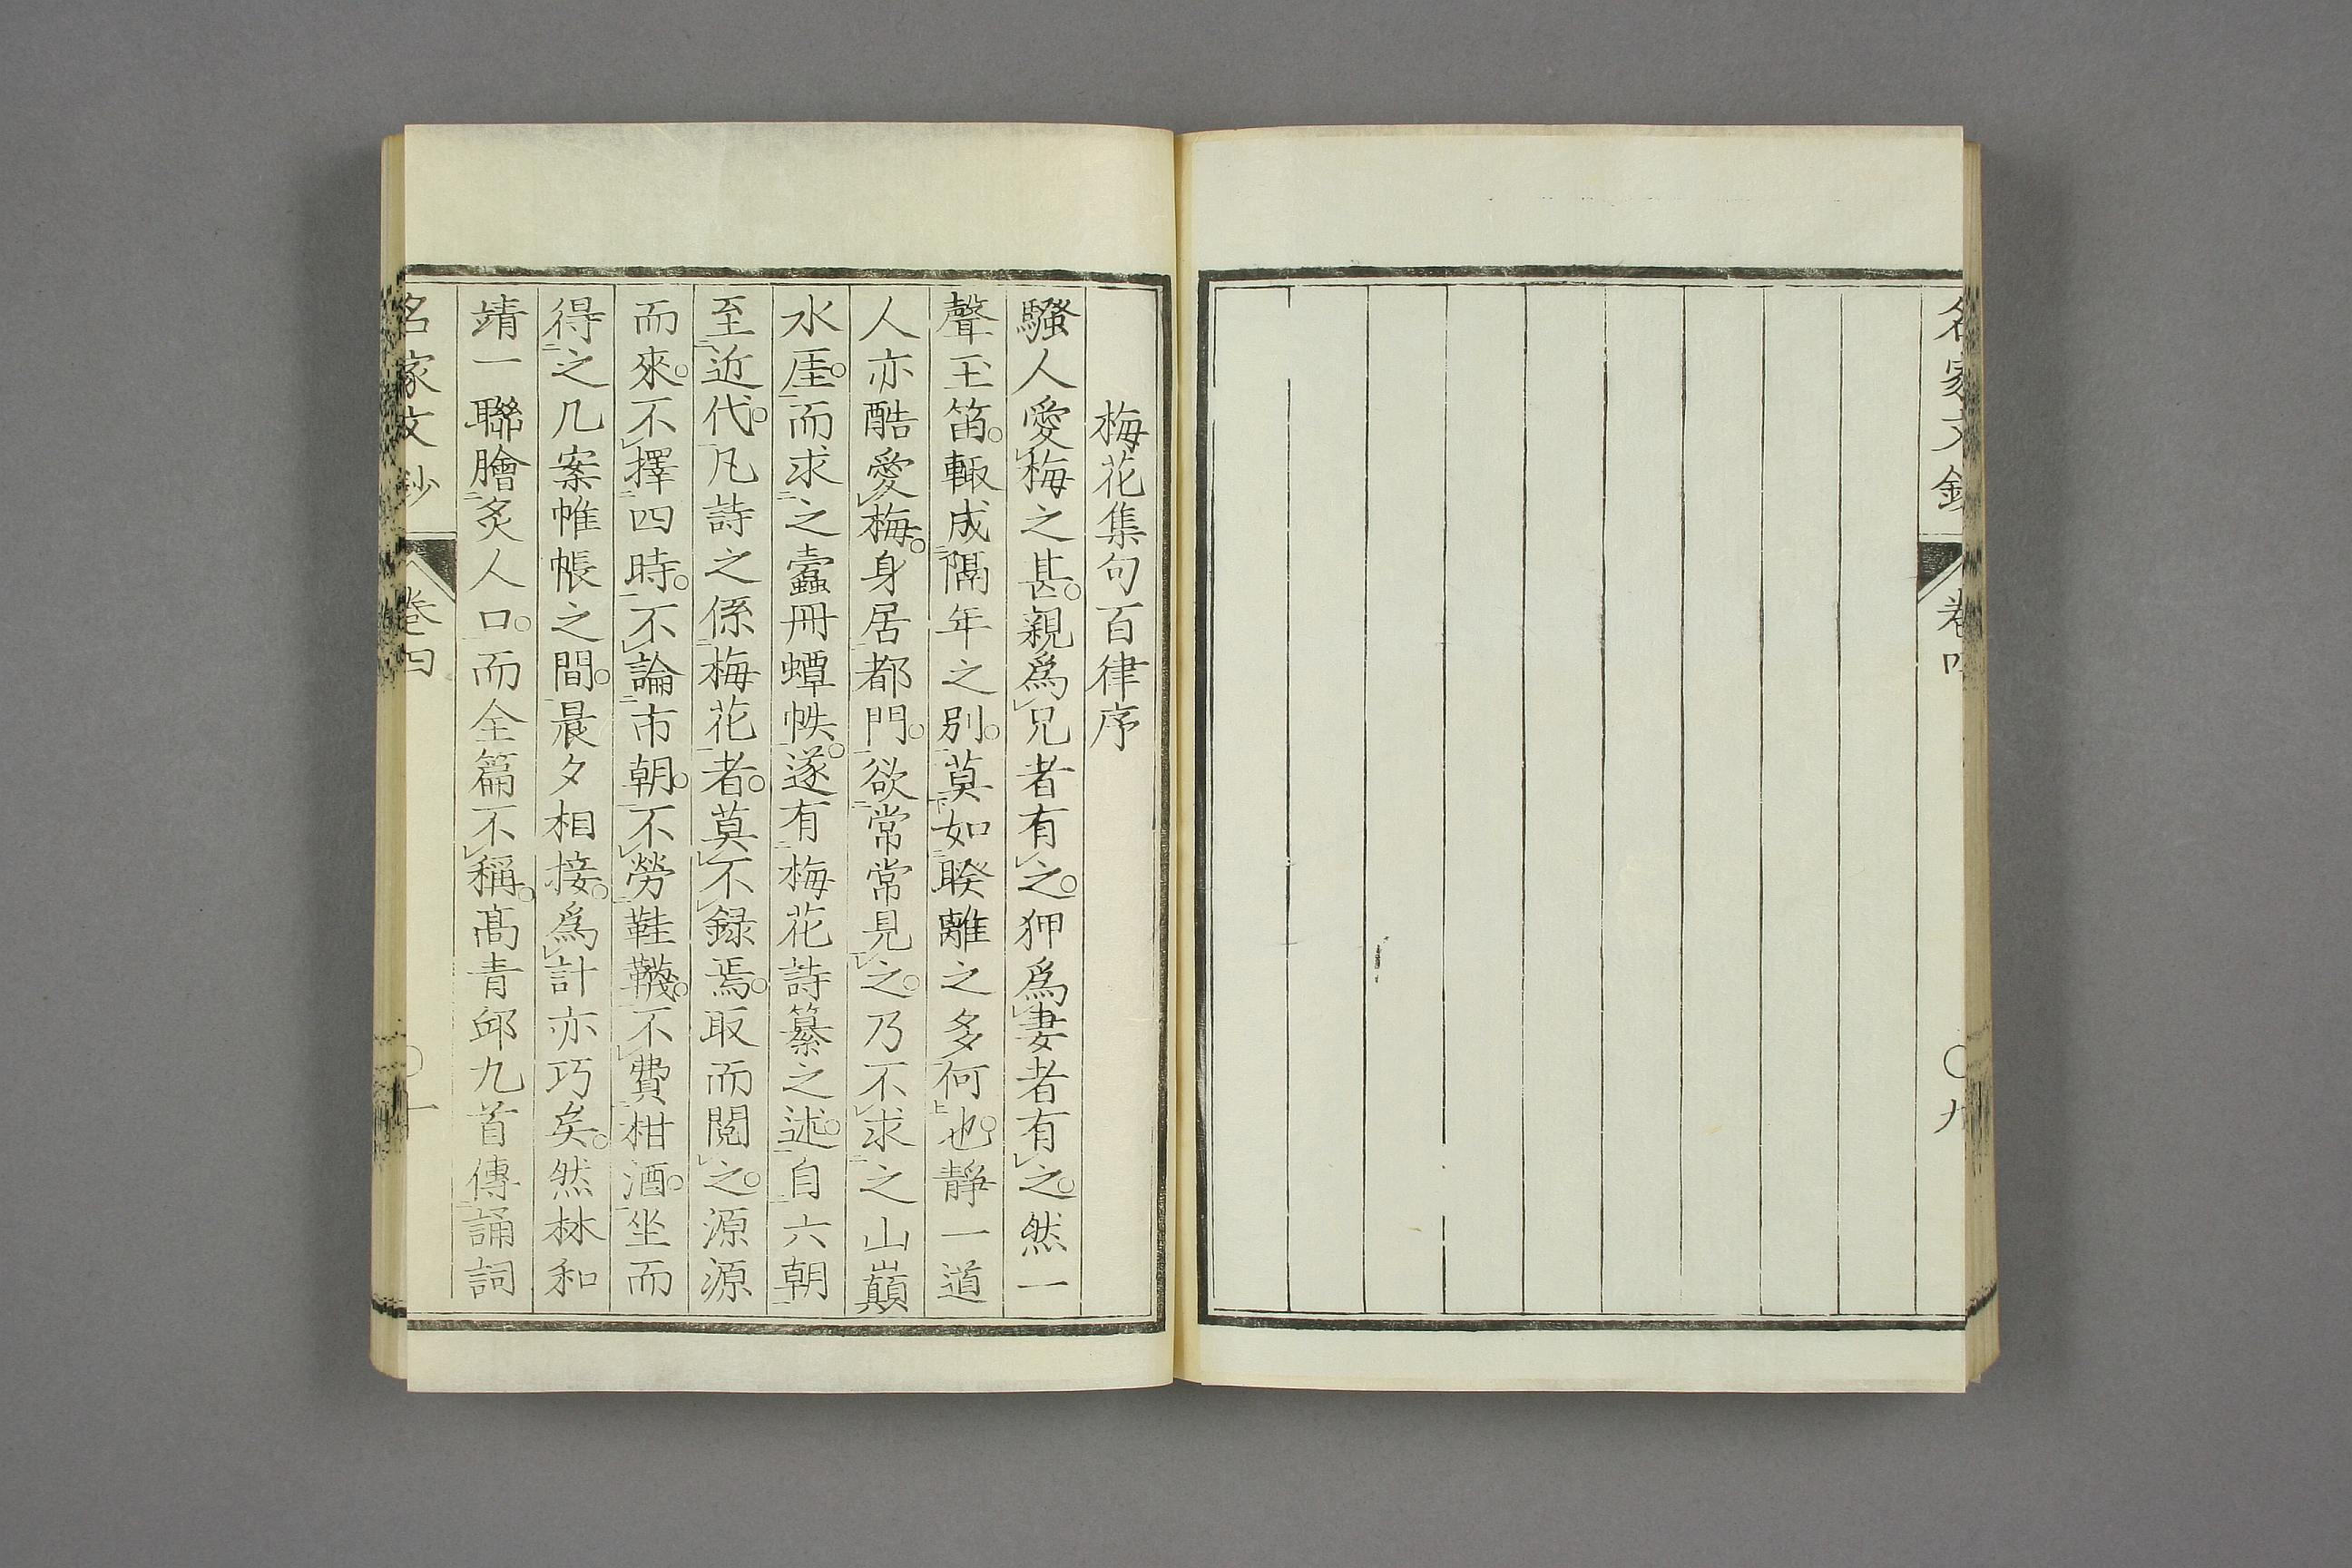 名家文鈔
卷四
〇九
梅花集句百律序
騷人愛梅之甚。親爲兄者有之。狎爲妻者有之。然一
聲玉笛。輙成隔年之別。莫如睽離之多何也。靜一道
人亦酷愛梅。身居都門。欲常常見之。乃不求之山巔
水厓。而求之蠹冊蟫帙。遂有梅花詩纂之述。自六朝
至近代。凡詩之係梅花者。莫不録焉。取而閱之。源源
而來。不擇四時。不論市朝。不勞鞋韈。不費柑酒。坐而
得之几案帷帳之間。晨夕相接。爲計亦巧矣。然林和
靖一聯膾炙人口。而全篇不稱。髙青邱九首傳誦詞
名家文鈔
卷四
〇十